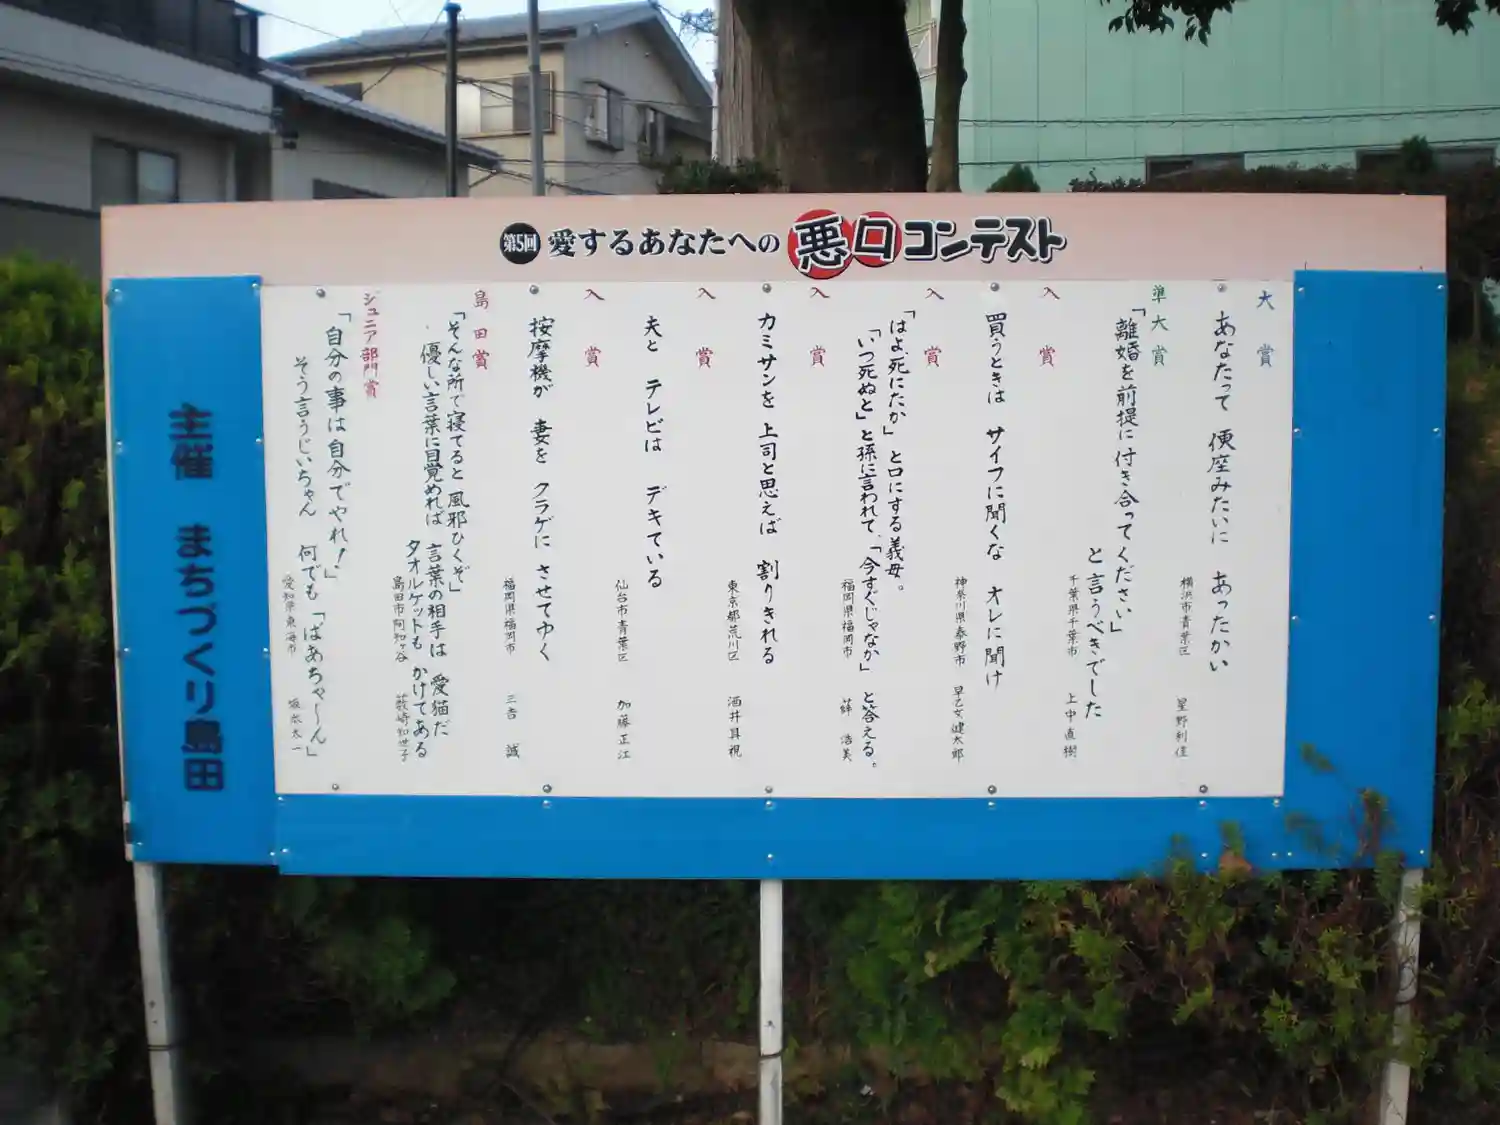 第5回 愛するあなたへの悪口コンテスト
大賞
あなたって 便座みたいに あったかい
横浜市青葉区 星野利佳
準大賞
「離婚を前提に付き合ってください」
と言うべきでした
千葉県千葉市 上中直樹
入賞
買うときは サイフに聞くな オレに聞け
神奈川県秦野市 早乙女健太郎
入賞
「はよ死にたか」と口にする義母。
「いつ死ぬと」と孫に言われて、「今すぐじゃなか」と答える。
福岡県福岡市 薛 浩美
入賞
カミサンを 上司と思えば 割りきれる
東京都荒川区 酒井具視
入賞
夫と テレビは デキている
仙台市青葉区 加藤正江
入賞
按摩機が 妻を クラゲに させてゆく
福岡県福岡市 三吉 誠
島田賞
「そんな所で寝てると風邪ひくぞ」
優しい言葉に目覚めれば 言葉の相手は 愛猫だ
タオルケットも かけてある
島田市阿知ヶ谷 薮崎知世子
ジュニア部門賞
「自分の事は自分でやれ！」
そう言うじいちゃん 何でも「ばあちゃ〜ん」
愛知県東海市 太一
主催 まちづくり島田